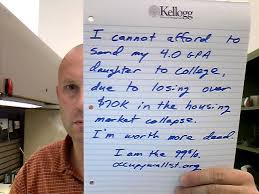 Kellogg
I cannot afford to
send my 4.0 GPA
daughter to college,
due to losing over
$70K in the housing
market collapse.
I'm worth more dead.
I am the 99%.
occupywallst.org